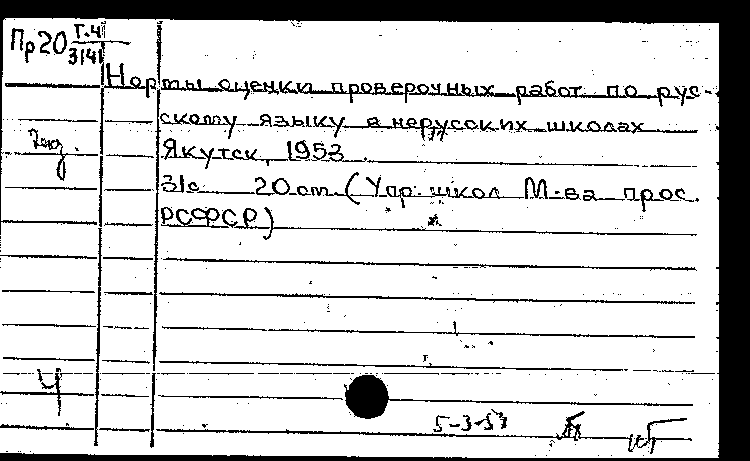 Пр20 Г.4
3141
Нормы оценки проверочных работ по рус-
скому языку в нерусских школах
Якутск, 1953.
31с 20 см. (Упр. школ М-ва прос.
РСФСР)
4
5-3-53